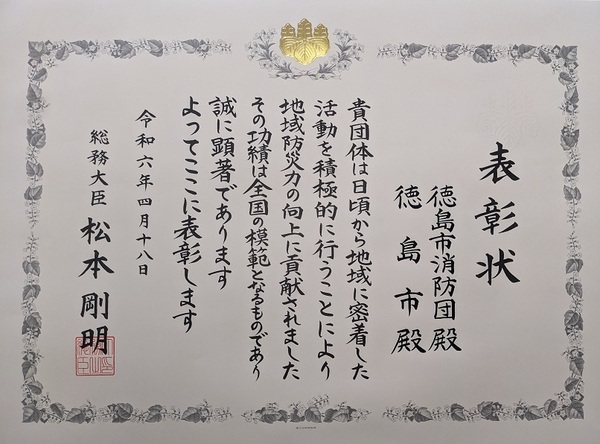 表彰状
徳島市消防団殿
徳島市殿
貴団体は日頃から地域に密着した
活動を積極的に行うことにより
地域防災力の向上に貢献されました
その功績は全国の模範となるものであり
誠に顕著であります
よってここに表彰します
令和六年四月十八日
総務大臣 松本剛明